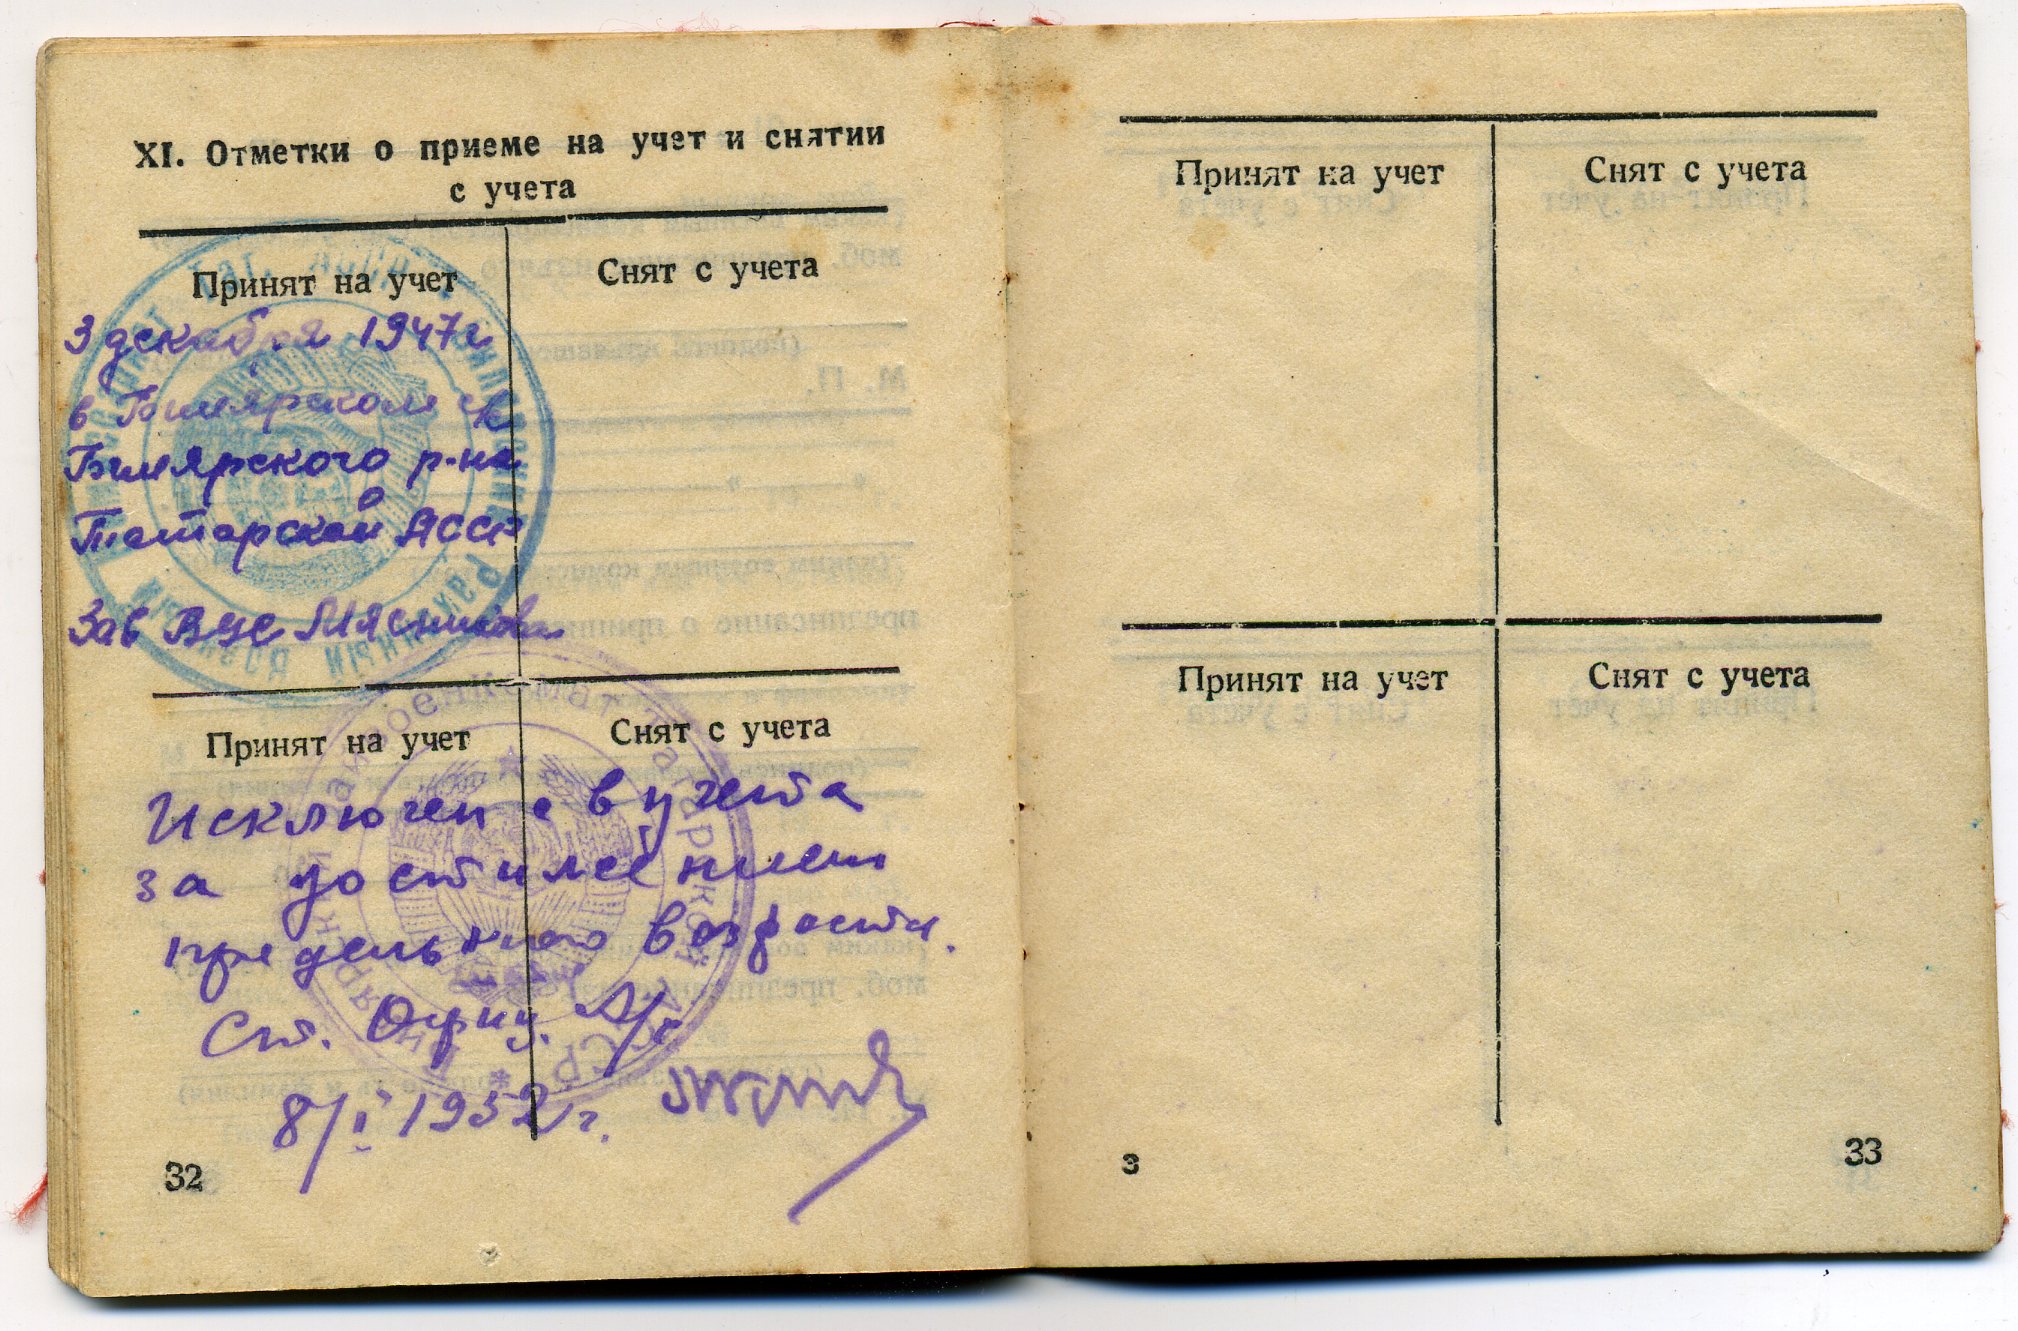 XI. Отметки о приеме на учет и снятии
с учета
Принят на учет
Снят с учета
3 декабря 1947 г
в Билярском
Билярского р-на
Татарской АССР
Зав ВУС Мясников
Принят на учет
Снят с учета
Исключен с в учета
за достижением
предельного возраста.
Ст. Офиц.
8/I 1952 г.
32
Принят на учет
Снят с учета
Принят на учет
Снят с учета
3
33